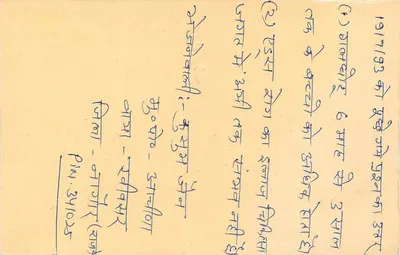 19/7/93 को पूछे गये प्रश्न का उत्तर
(१) गलघोंटू 6 माह से 3 साल
तक के बच्चो को अधिक होता है
(२) एड्स रोग का इलाज चिकित्सा
जगत में अभी तक संभव नहीं है
भेजनेवाली:- कुसुम जैन
मु०पो०- आचीणा
वाया- खींवसर
जिला- नागौर (राज०
PIN-341025